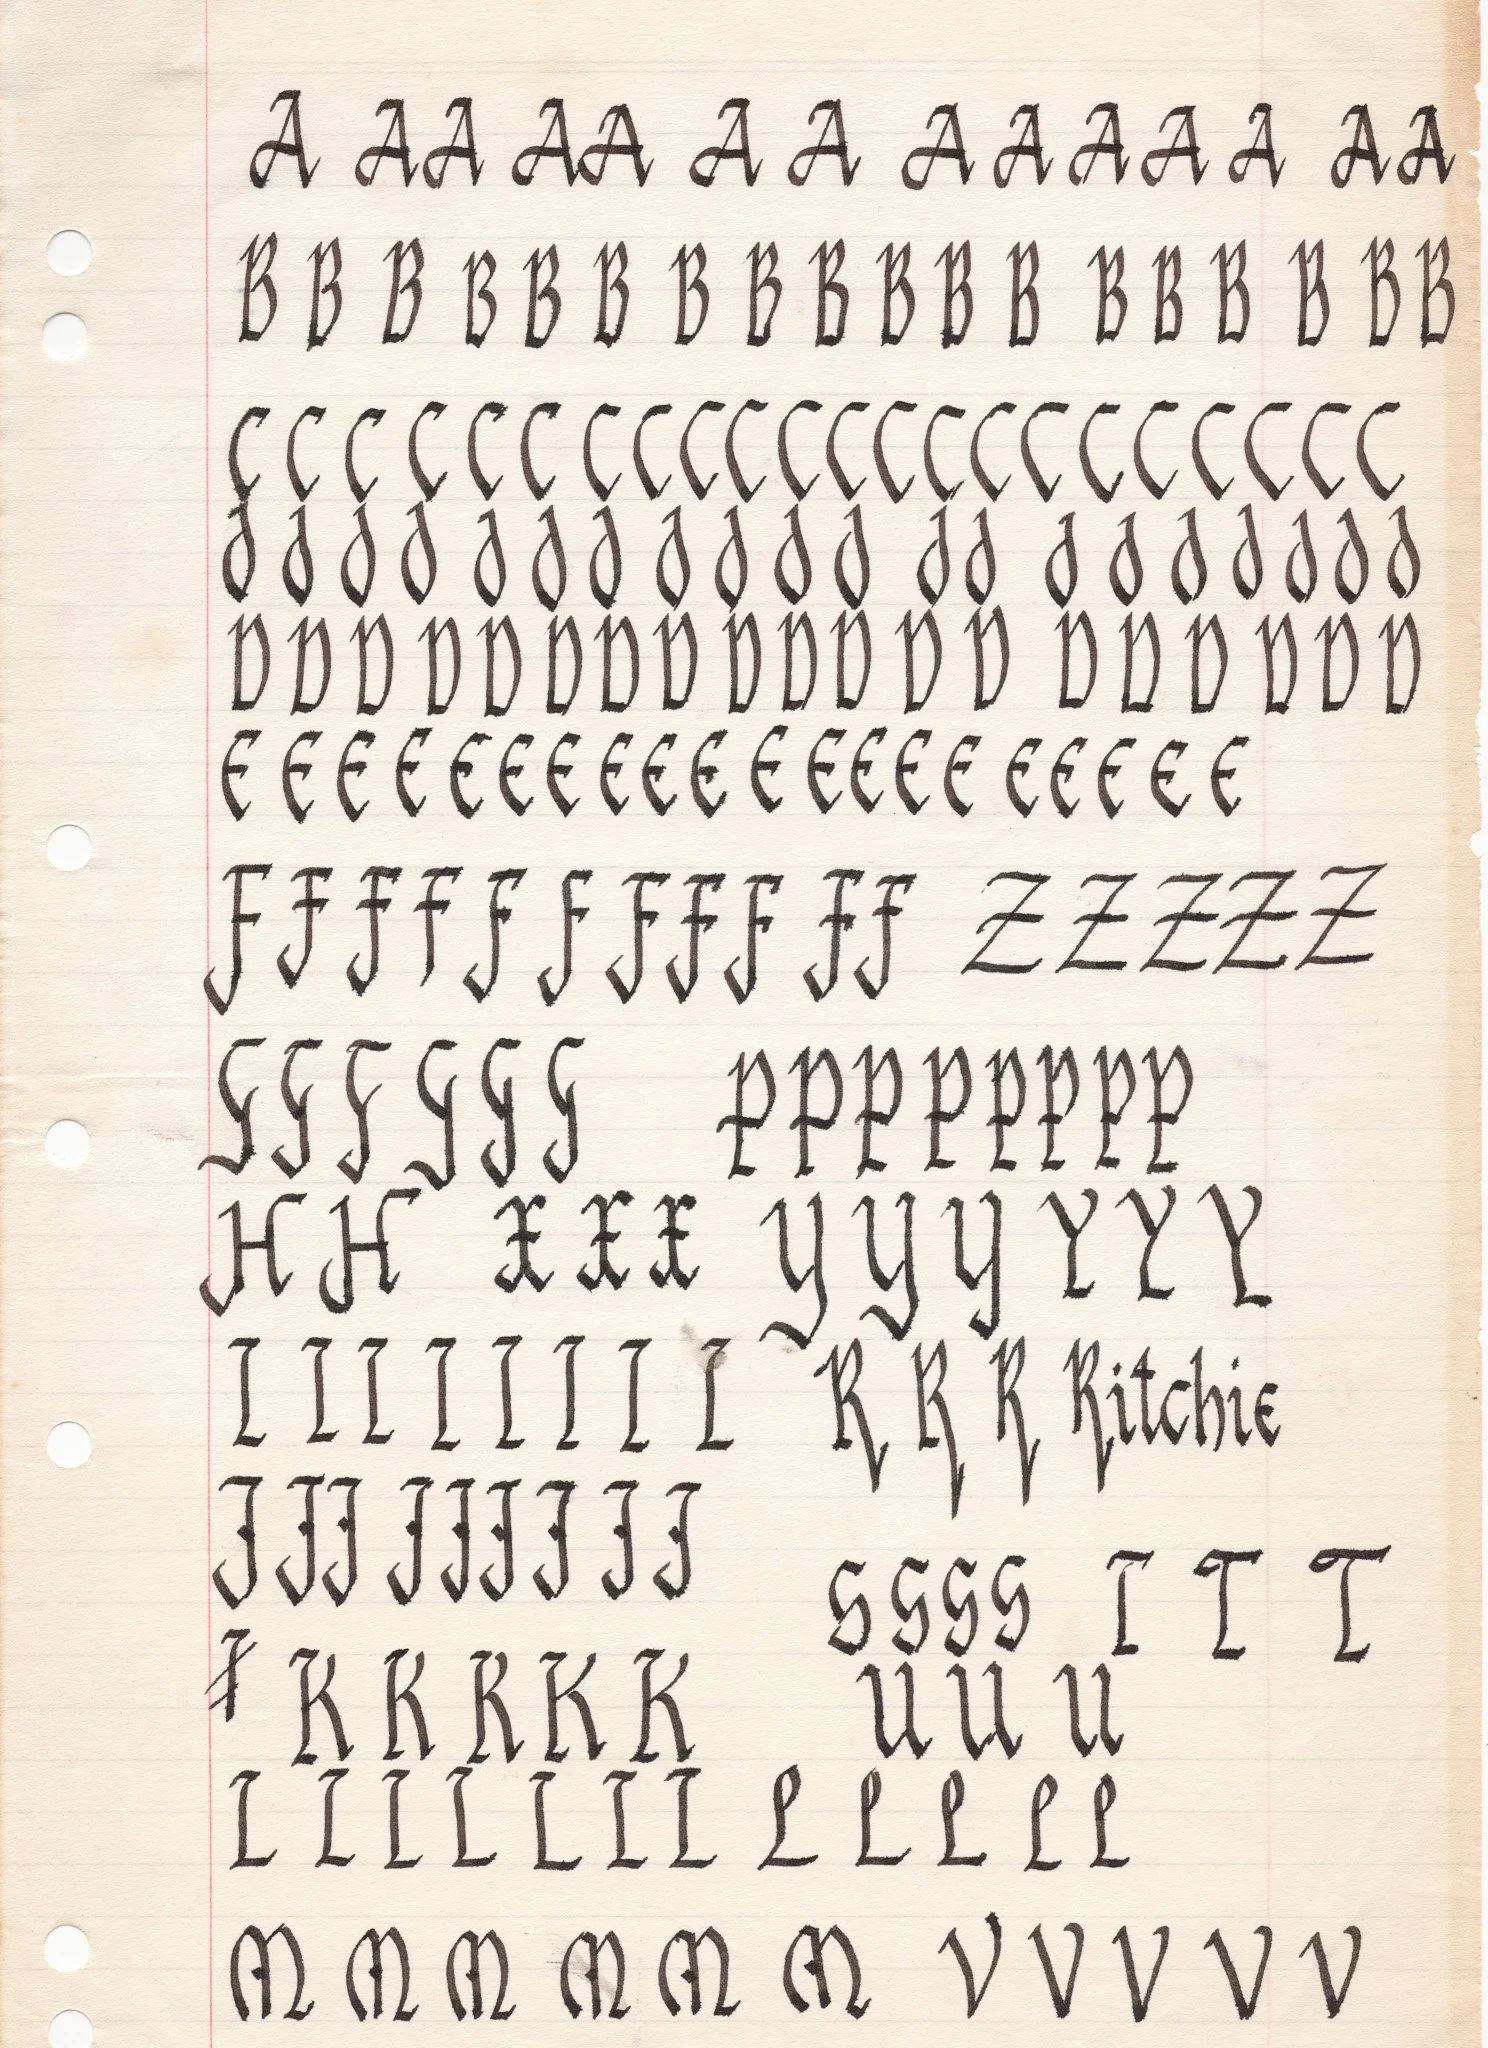 A AA AA A A A A A A A AA
B B B B B B B B B B B B B B B B B B
C C C C C C C C C C C C C C C C C C C C C C
d d d d d d d d d d d d d d d d d d d d
D D D D D D D D D D D D D D D D D D D
E E E E E E E E E E E E E E E E E E E E
F F F F F F F F F F F Z Z Z Z Z
S S S S S S P P P P P P P P
H H X X X Y Y Y Y Y Y
I I I I I I I I R R R Ritchie
J J J J J J J J J
S S S S T T T
K K K K K U U U
L L L L L L L L L L L L
M M M M M M V V V V V